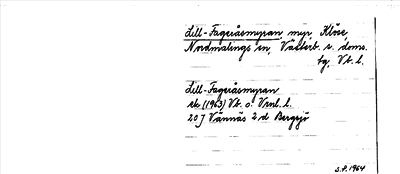 Lill-Fageråsmyran, myr, Klöse,
Nordmalings sn, Västerb. s. doms.
tg, Vb. l.
Lill-Fageråsmyran
rk (1963) Vb. o. Vrml. l.
20 J Vännäs 2 d Bergsjö
S.P. 1964